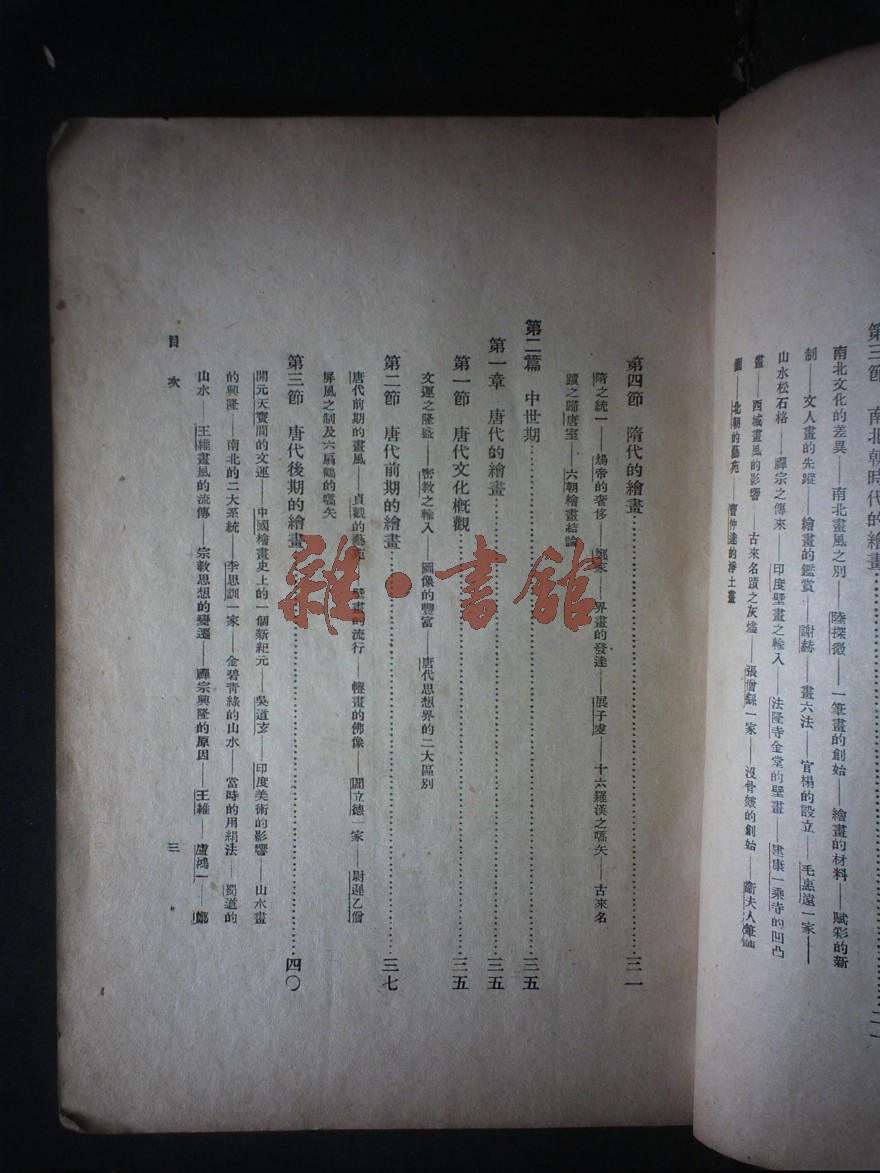 第三節　南北朝時代的繪畫
南北文化的差異——南北畫風之別——陸探微——一筆畫的創始——繪畫的材料——賦彩的新
制——文人畫的先蹤——繪畫的鑑賞——謝赫——畫六法——官榻的設立——毛惠遠一家——
山水松石格——禪宗之傳來——印度壁畫之輸入——法隆寺金堂的壁畫——建康一乘寺的凹凸
畫——西域畫風的影響——古來名蹟之灰燼——張僧繇一家——沒骨皴的創始——衞夫人筆
圖——北朝的藝苑——曹仲達的淨土畫
第四節　隋代的繪畫……三一
隋之統一——煬帝的奢侈——鄭家——界畫的發達——展子虔——十六羅漢之嚆矢——古來名
蹟之歸唐室——六朝繪畫結論
第二篇　中世期……三五
第一章　唐代的繪畫……三五
第一節　唐代文化概觀……三五
文運之隆盛——密教之輸入——圖像的豐富——唐代思想界的二大區別
第二節　唐代前期的繪畫……三七
唐代前期的畫風——貞觀的藝苑——壁畫的流行——幢畫的佛像——閻立德一家——尉遲乙僧
屏風之制及六扇鶴的嚆矢
第三節　唐代後期的繪畫……四〇
開元天寶間的文運——中國繪畫史上的一個新紀元——吳道玄——印度美術的影響——山水畫
的興隆——南北的二大系統——李思訓一家——金碧青綠的山水——當時的用絹法——蜀道的
山水——王維畫風的流傳——宗教思想的變遷——禪宗興隆的原因——王維——盧鴻一——鄭
目次
三
雜·書館